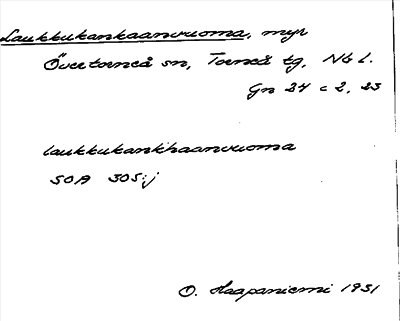 Laukkukankaanvuoma, myr
Övertorneå sn, Torneå tg, Nb l.
Gn 24 c 2, 23
laukkukank'haanvuoma
SOA 305:j
O. Haapaniemi 1931